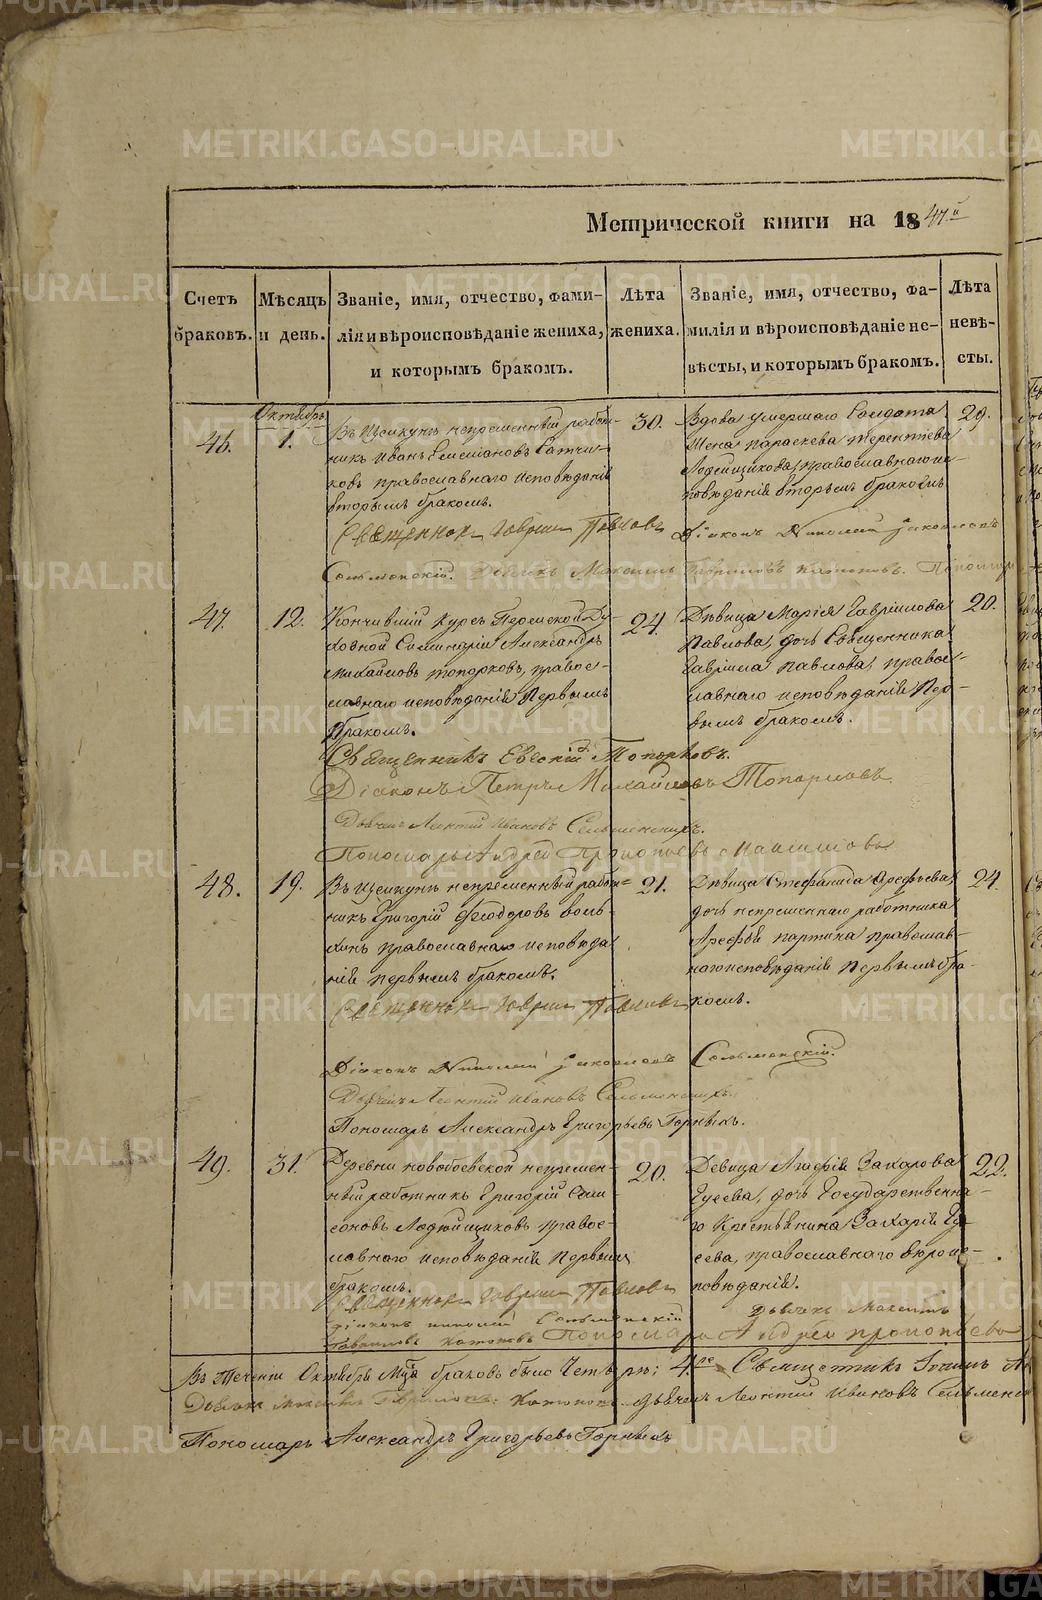 Метрической книги на 1847й
Счетъ браковъ.
Мѣсяцъ и день.
Званіе, имя, отчество, фами-
лія и вѣроисповѣданіе жениха,
и которымъ бракомъ.
Лѣта
жениха.
Званіе, имя, отчество, фа-
милія и вѣроисповѣданіе не-
вѣсты, и которымъ бракомъ.
Лѣта
невѣ-
сты.
Октябрь
46.
1.
непременный работ-
никъ Иванъ
ковъ православнаго исповѣданія
вторымъ бракомъ.
30.
Вдова умершаго Солдата
Жена Параскева Терентьева
православнаго ис-
повѣданія вторымъ бракомъ
29.
Священникъ Гавриилъ Павловъ Діаконъ Николай Іаковлевъ
Сельменскій. Дьячекъ Максимъ Гавриловъ
47.
12.
Кончившій курсъ Пермской Ду-
ховной Семинаріи Александръ
Михайловъ Топорковъ, правос-
лавнаго исповѣданія Первымъ
бракомъ.
24.
Дѣвица Марія Гавріилова
Павлова, дочь Священника
Гавріила Павлова, правос-
лавнаго исповѣданія Пер-
вымъ бракомъ.
20.
Священникъ Евгеній Топорковъ.
Діаконъ Петръ Михайловъ Топорковъ
Дьячекъ Леонтій Ивановъ Сельменскихъ.
Пономарь Андрей Прокопьевъ
48.
19.
непременный работ-
никъ Григорій Феодоровъ
православнаго исповѣда
нія первымъ бракомъ.
21.
Дѣвица Стефанида Арефьева,
дочь непременнаго работника
Арефья православ-
наго исповѣданія Первымъ бра-
комъ.
24.
Священникъ Гавриилъ Павловъ
Діаконъ Николай Іаковлевъ Сельменскій.
Дьячекъ Леонтій Ивановъ Сельменскихъ.
Пономарь Александръ Григорьевъ Горныхъ.
49.
31.
Деревни непремен-
ный работникъ Григорій Сам-
соновъ правос-
лавнаго исповѣданія Первымъ
бракомъ.
20.
Девица Захарова
Гусева, дочь Государственна-
го Крестьянина Захарія Гу-
сева, православнаго вѣроис-
повѣданія.
22.
Священникъ Гавриилъ Павловъ
Дьячекъ Максимъ
Діаконъ Николай Сельменскій
Гавриловъ Пономарь Андрей Прокопьевъ
Въ Теченіи Октября Мца браковъ было Четыре; 4ре Священникъ
Дьячекъ Максимъ Гавриловъ Дьячекъ Леонтій Ивановъ
Пономарь Александръ Григорьевъ Горныхъ
METRIKI.GASO-URAL.RU